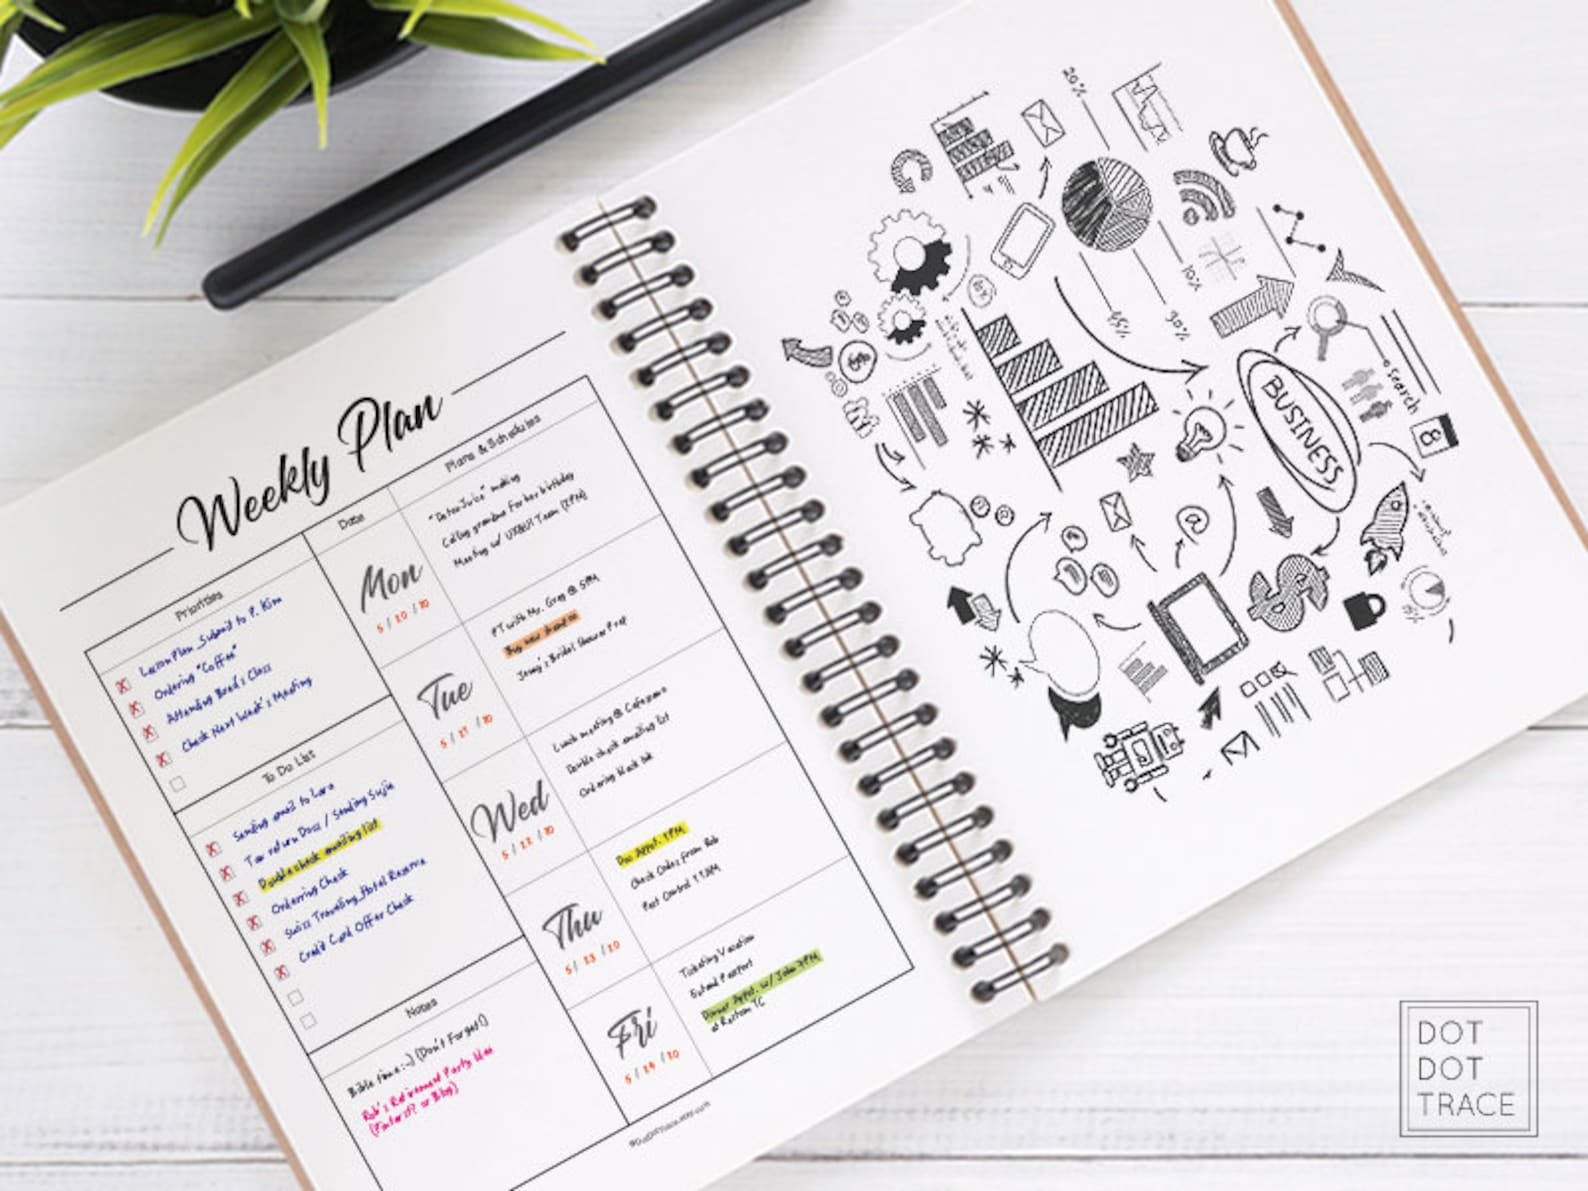 Weekly Plan
Priorities
Lesson Plan_Submit to P. Kim
Ordering "Coffee"
Attending Bred's Class
Check Next Week's Meeting
To Do List
Sending email to Lara
Tax return Docs / Sending Sujie
Double check emailing list
Ordering Check
Swiss Traveling_Hotel Reserve
Credit Card Offer Check
Notes
Bible time :-) (Don't Forget!)
Rob's Retirement Party Idea
(Pinterst? or Blog)
Date
Plans & Schedules
Mon
"Detox Juice" making
Calling grandma for her birthday
Meeting w/ UX&UI Team (2PM)
Tue
PT with Mr. Greg @ 5PM
Buy new
Jenny's Bridal Shower Prep
Wed
Lunch meeting @
Double check emailing list
Ordering black ink
5 / 22 / 20
Thu
Doc Appt. 1PM
Check Codes from Rob
Pest Control 11AM
5 / 23 / 20
Fri
Ticketing Vacation
Extend Passport
Dinner Appt. w/ John 7PM
at Rostom TC
5 / 24 / 20
20%
10%
45%
30%
BUSINESS
Search
8
@
DOT
DOT
TRACE